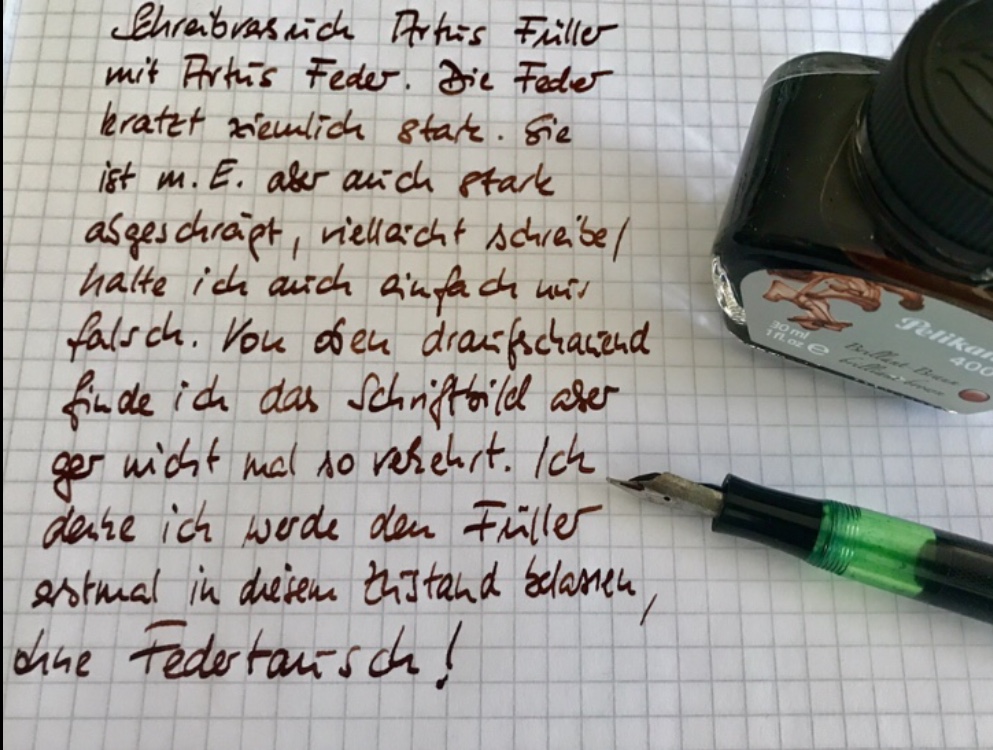 Schreibversuch Artus Füller
mit Artus Feder. Die Feder
kratzt ziemlich stark. Sie
ist m. E. aber auch stark
abgeschrägt, vielleicht schreibe/
halte ich auch einfach nur
falsch. Von oben draufschauend
finde ich das Schriftbild aber
gar nicht mal so verkehrt. Ich
denke ich werde den Füller
erstmal in diesem Zustand belassen,
ohne Federtausch!
30 ml
1 fl.oz e
Pelikan
400
Brilliant Brown